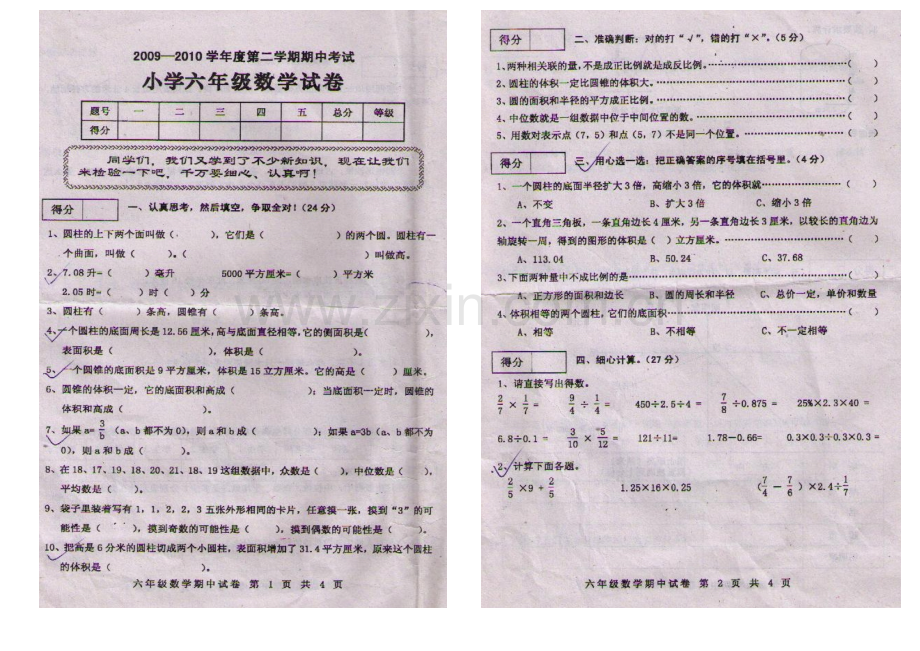 2009—2010学年度第二学期期中考试
小学六年级数学试卷
题号 一 二 三 四 五 总分 等级
得分
同学们，我们又学到了不少新知识，现在让我们
来检验一下吧，千万要细心、认真啊！
得分 一、认真思考，然后填空，争取全对！（24分）
1、圆柱的上下两个面叫做（ ），它们是（ ）的两个圆。圆柱有一
个曲面，叫做（ ）。（ ）叫做高。
2、7.08升=（ ）毫升 5000平方厘米=（ ）平方米
2.05时=（ ）时（ ）分
3、圆柱有（ ）条高，圆锥有（ ）条高。
4、一个圆柱的底面周长是12.56厘米，高与底面直径相等，它的侧面积是（ ），
表面积是（ ），体积是（ ）。
5、一个圆锥的底面积是9平方厘米，体积是15立方厘米。它的高是（ ）厘米。
6、圆锥的体积一定，它的底面积和高成（ ）；当底面积一定时，圆锥的
体积和高成（ ）。
7、如果a=3/b（a、b都不为0），则a和b成（ ）；如果a=3b（a、b都不为
0），则a和b成（ ）。
8、在18、17、19、18、20、21、18、19这组数据中，众数是（ ），中位数是（ ），
平均数是（ ）。
9、袋子里装着写有1，1，2，2，3五张外形相同的卡片，任意摸一张，摸到“3”的可
能性是（ ），摸到奇数的可能性是（ ），摸到偶数的可能性是（ ）。
10、把高是6分米的圆柱切成两个小圆柱，表面积增加了31.4平方厘米，原来这个圆柱
的体积是（ ）。
六年级数学期中试卷 第 1 页 共 4 页
得分 二、准确判断：对的打“√”，错的打“×”。（5分）
1、两种相关联的量，不是成正比例就是成反比例。……（ ）
2、圆柱的体积一定比圆锥的体积大。……（ ）
3、圆的面积和半径的平方成正比例。……（ ）
4、中位数就是一组数据中位于中间位置的数。……（ ）
5、用数对表示点（7，5）和点（5，7）不是同一个位置。……（ ）
得分 三、用心选一选：把正确答案的序号填在括号里。（4分）
1、一个圆柱的底面半径扩大3倍，高缩小3倍，它的体积就……（ ）
A、不变 B、扩大3倍 C、缩小3倍
2、一个直角三角板，一条直角边长4厘米，另一条直角边长3厘米，以较长的直角边为
轴旋转一周，得到的图形的体积是（ ）立方厘米。……（ ）
A、113.04 B、50.24 C、37.68
3、下面两种量中不成比例的是……（ ）
A、正方形的面积和边长 B、圆的周长和半径 C、总价一定，单价和数量
4、体积相等的两个圆柱，它们的底面积……（ ）
A、相等 B、不相等 C、不一定相等
得分 四、细心计算。（27分）
1、请直接写出得数。
2/7 × 1/7 = 9/4 ÷ 1/4 = 450÷2.5÷4 = 7/8 ÷0.875 = 25%×2.3×40 =
6.8÷0.1 = 3/10 × 5/12 = 121÷11= 1.78－0.66= 0.3×0.3÷0.3×0.3 =
2、计算下面各题。
2/5 ×9 + 2/5 1.25×16×0.25 （7/4 － 7/6）×2.4÷1/7
六年级数学期中试卷 第 2 页 共 4 页
www.zixin.com.cn